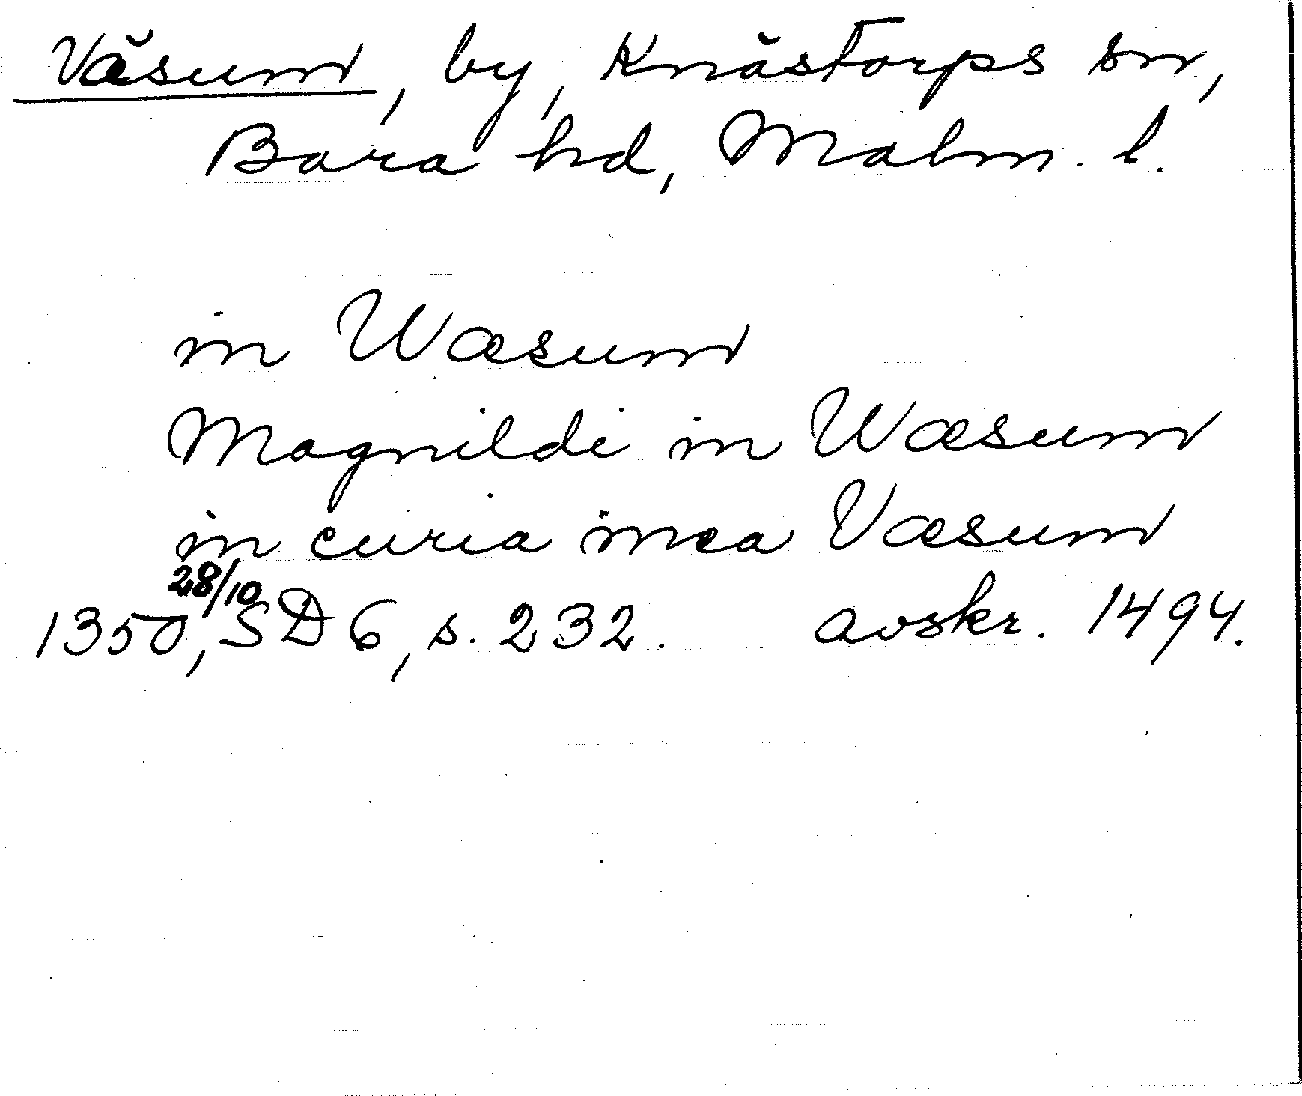 Väsum, by, Knästorps sn,
Bara hd, Malm. l.
in Wæsum
Magnildi in Wæsum
in curia mea Væsum
1350 28/10, SD 6, s. 232. avskr. 1494.